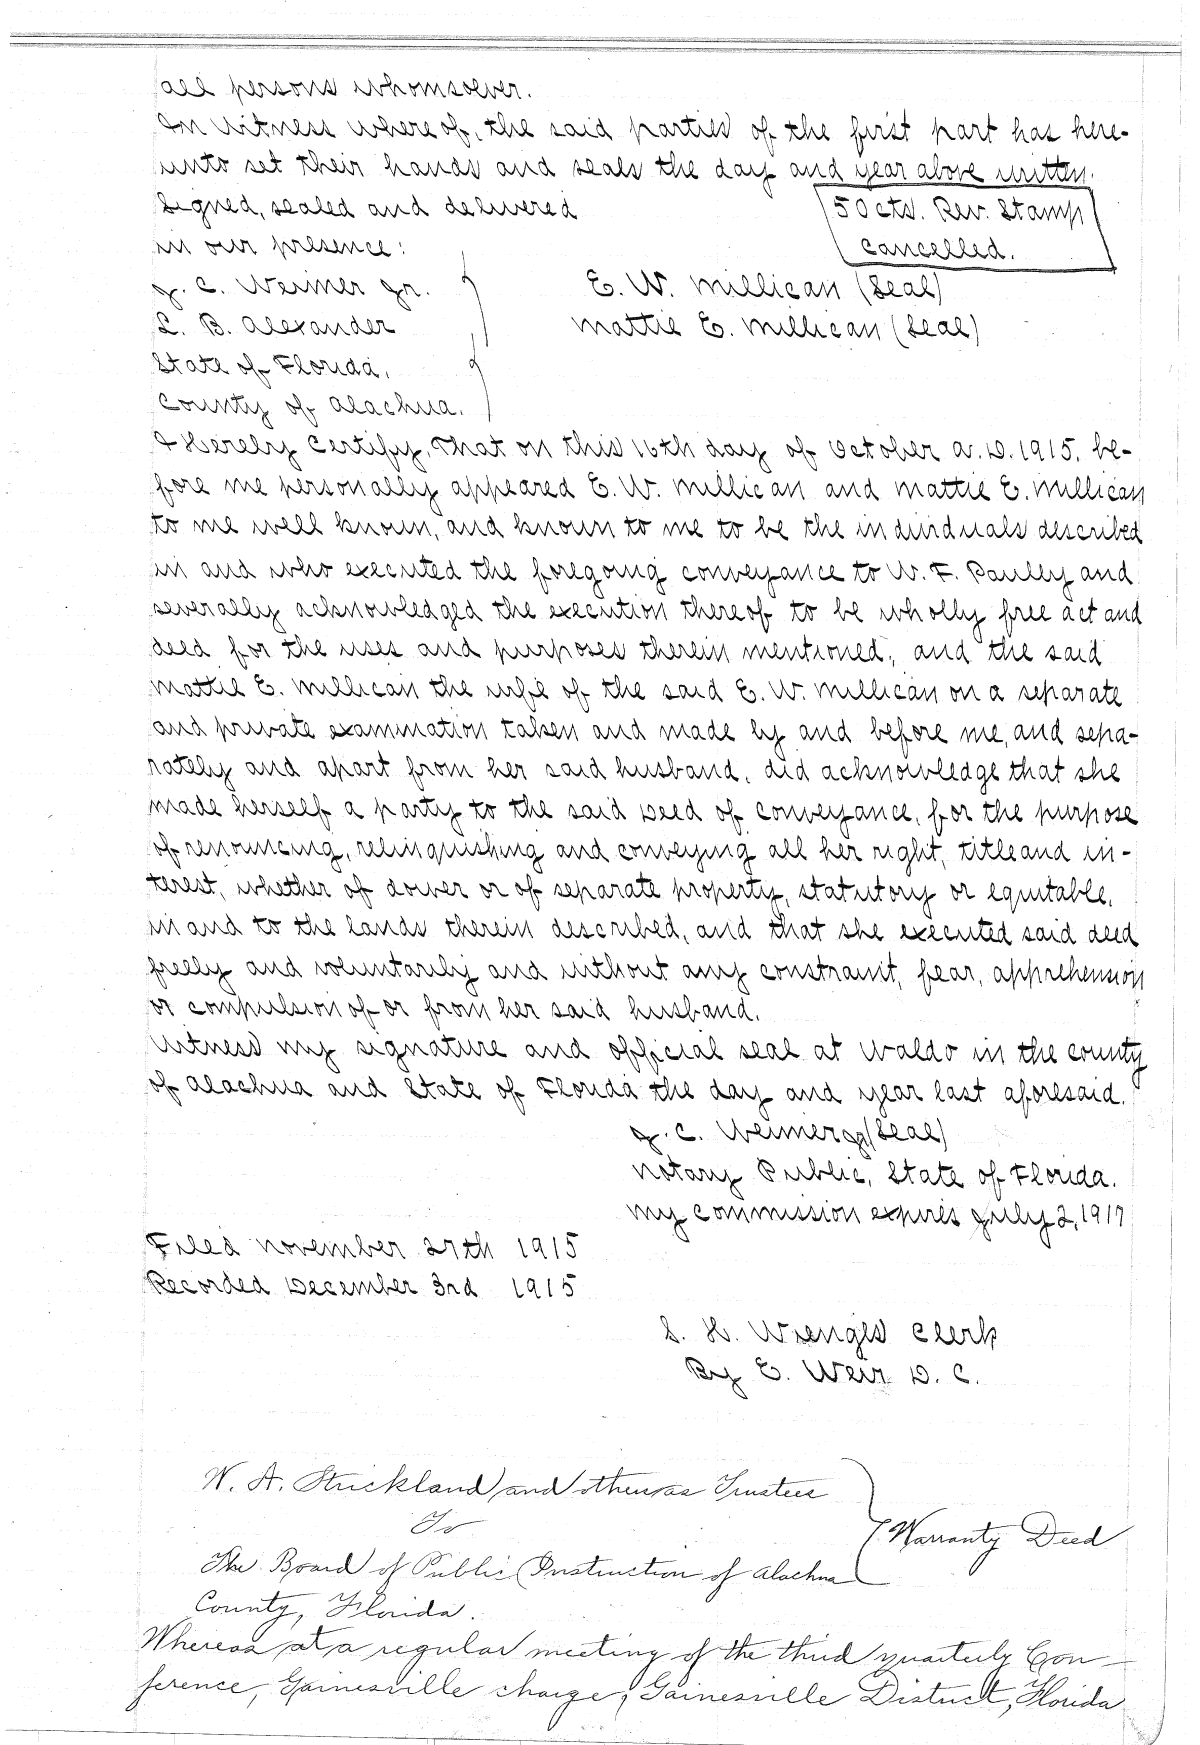 all persons whomsoever.
In Witness whereof, the said parties of the first part has here-
unto set their hands and seals the day and year above written.
Signed, sealed and delivered
50 cts. Rev. Stamp
in our presence:
cancelled.
J. C. Weimer Jr.
E. W. Millican (Seal)
L. B. Alexander
Mattie E. Millican (Seal)
State of Florida,
County of Alachua.
I Hereby Certify, That on this 16th day of October A. D. 1915, be-
fore me personally appeared E. W. Millican and Mattie E. Millican
to me well known, and known to me to be the individuals described
in and who executed the foregoing conveyance to W. F. Pauley and
severally acknowledged the execution thereof to be wholly free act and
deed for the uses and purposes therein mentioned; and the said
Mattie E. Millican the wife of the said E. W. Millican on a separate
and private examination taken and made by and before me, and sepa-
rately and apart from her said husband, did acknowledge that she
made herself a party to the said Deed of conveyance, for the purpose
of renouncing, relinquishing and conveying all her right, title and in-
terest, whether of dower or of separate property, statutory or equitable,
in and to the lands therein described, and that she executed said deed
freely and voluntarily and without any constraint, fear, apprehension
or compulsion of or from her said husband.
Witness my signature and official seal at Waldo in the county
of Alachua and State of Florida the day and year last aforesaid.
J. C. Weimer Jr (Seal)
Notary Public, State of Florida.
My commission expires July 2, 1917
Filed November 27th 1915
Recorded December 3rd 1915
S. H. Wienges Clerk
By E. Weir D. C.
W. A. Strickland and others as Trustees
To
Warranty Deed
The Board of Public Instruction of Alachua
County, Florida.
Whereas at a regular meeting of the third quarterly Con-
ference, Gainesville charge, Gainesville District, Florida